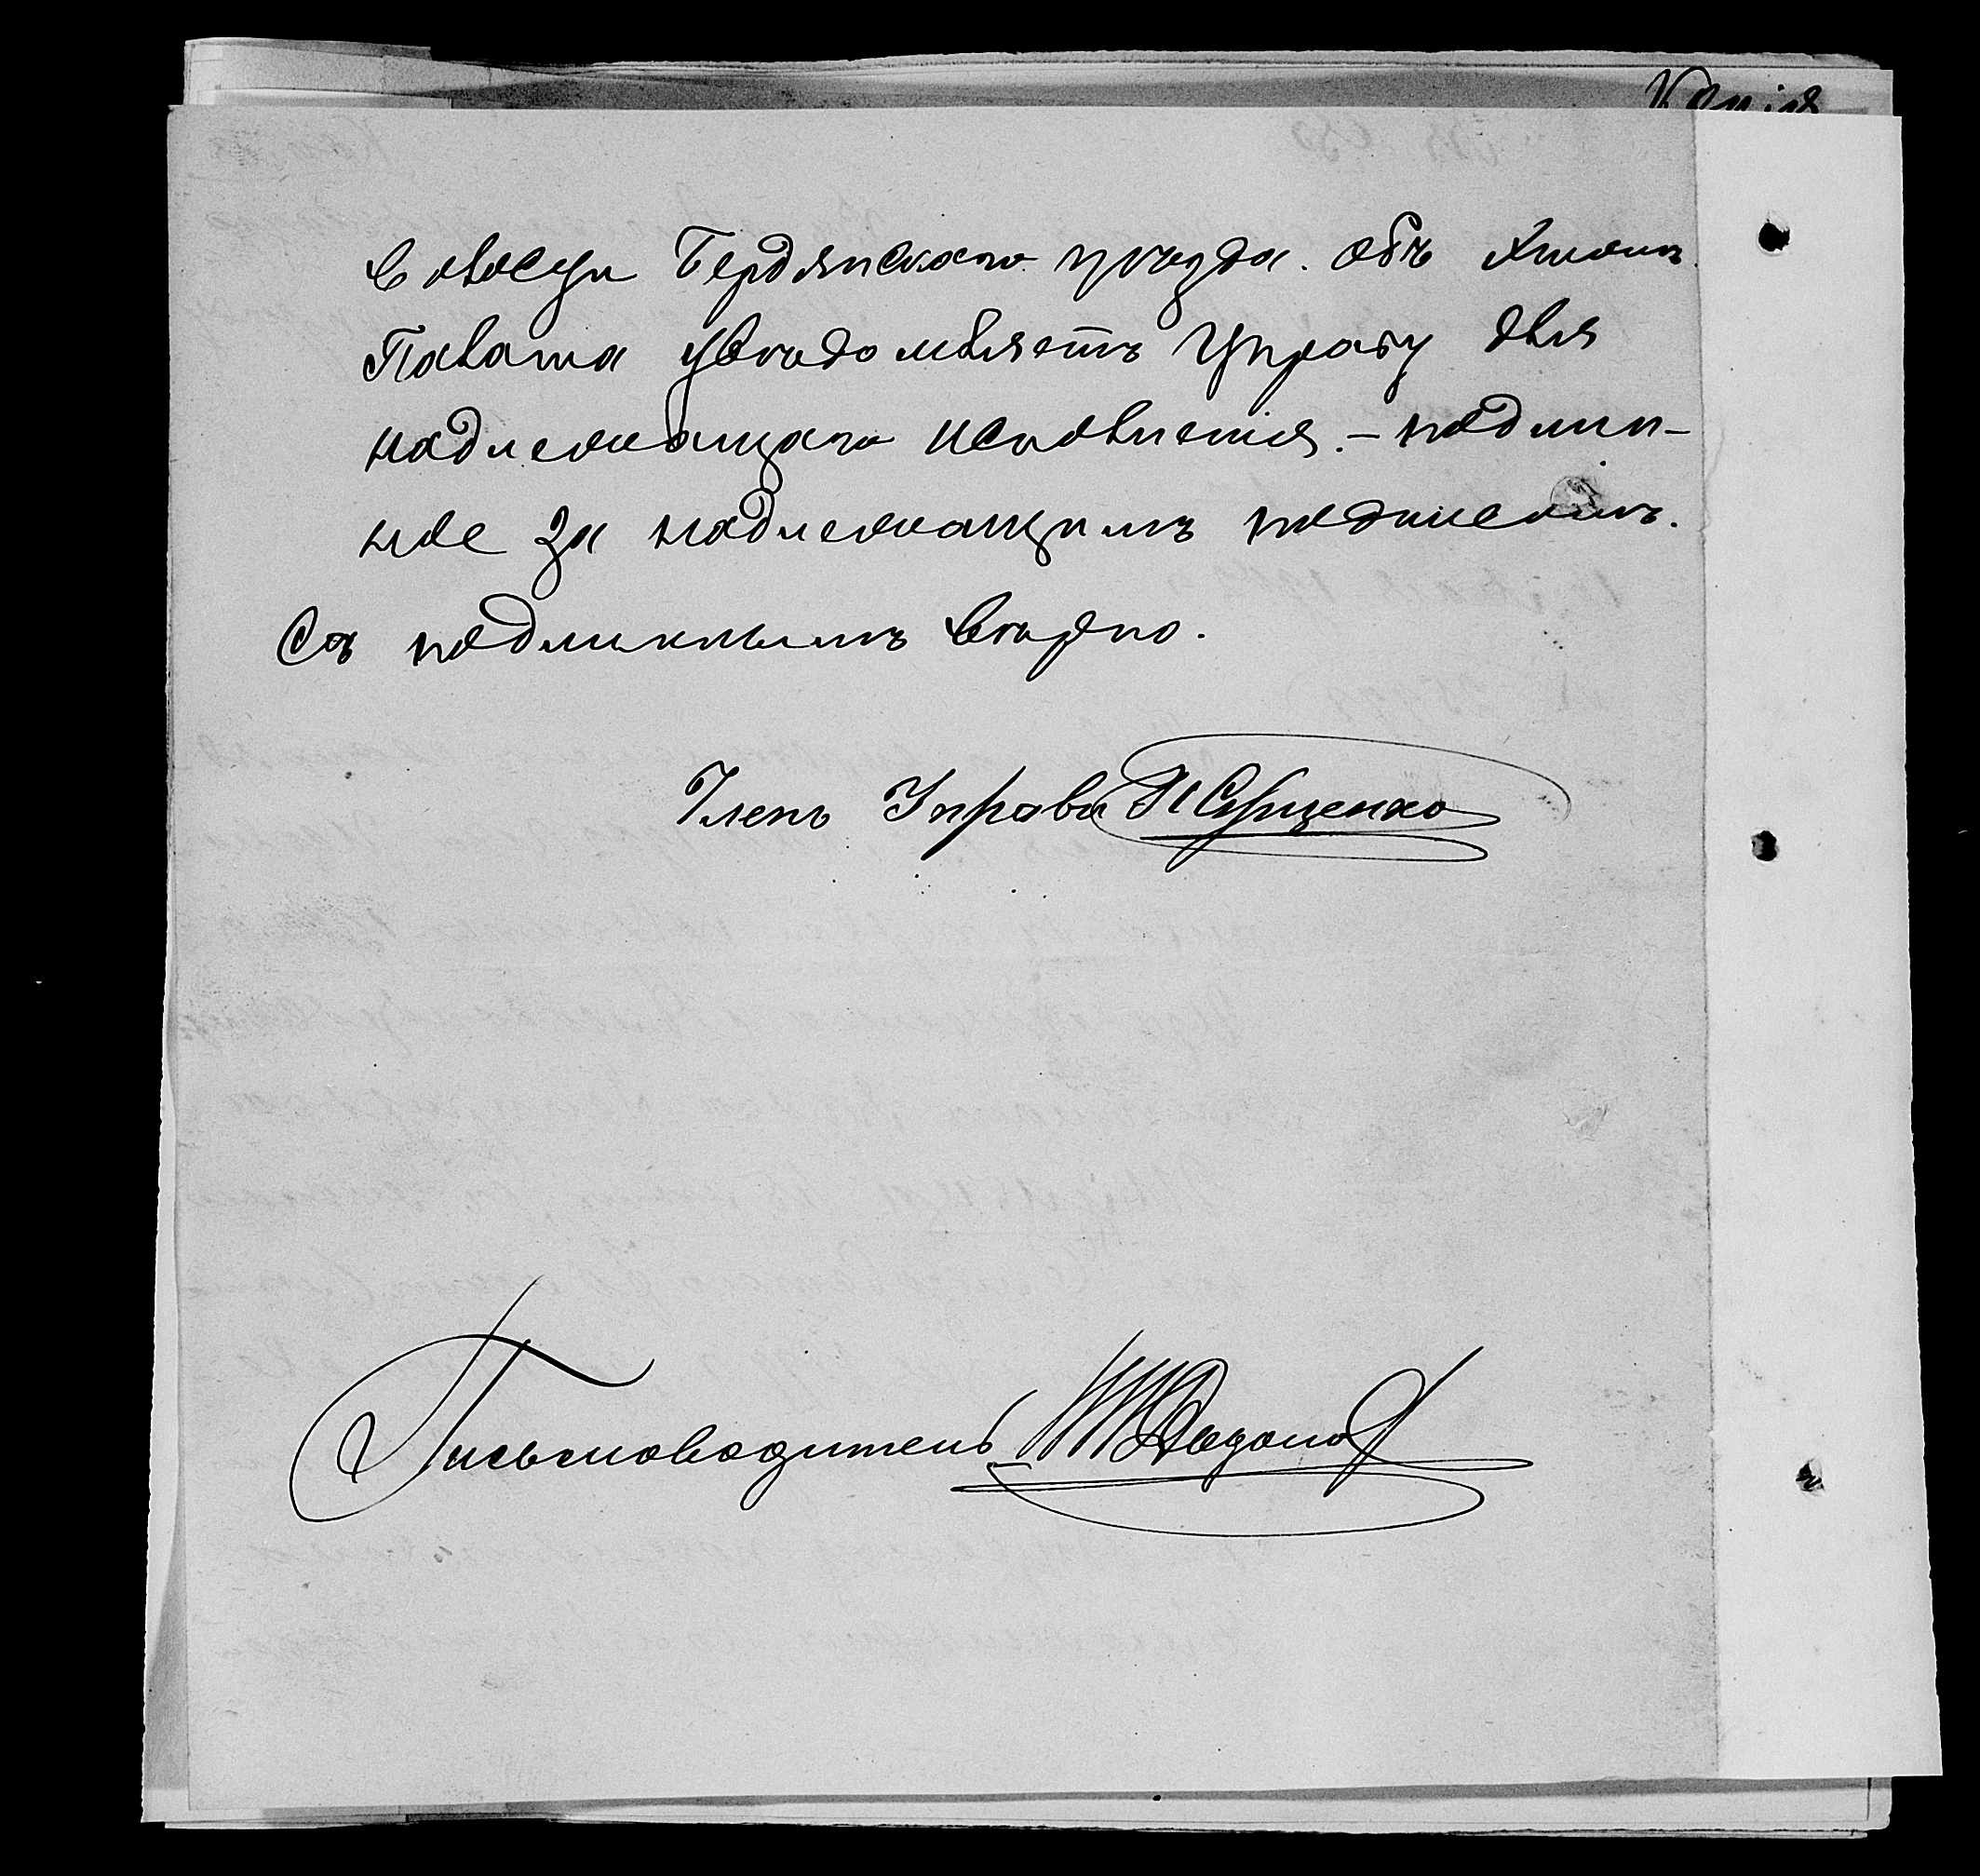 Копія
волости Бердянскаго уѣзда. Объ этомъ
Палата увѣдомляетъ Управу для
надлежащаго исполненія. – Подлин-
ное за надлежащимъ подписомъ.
Съ подлиннымъ вѣрно.
Членъ Управы
Письмоводитель